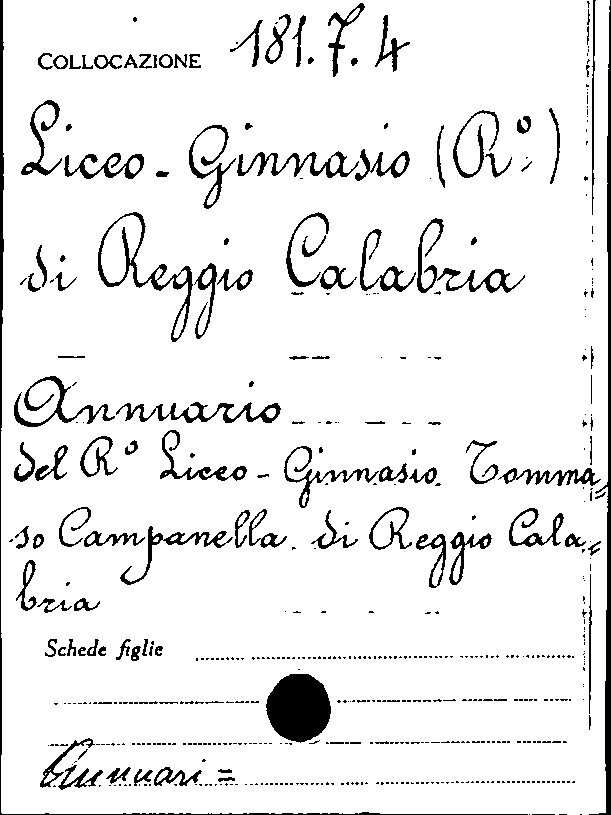 COLLOCAZIONE 181.7.4
Liceo-Ginnasio (Rº)
di Reggio Calabria
Annuario
del Rº Liceo-Ginnasio Tomma=
so Campanella di Reggio Cala=
bria
Schede figlie
Annuari=